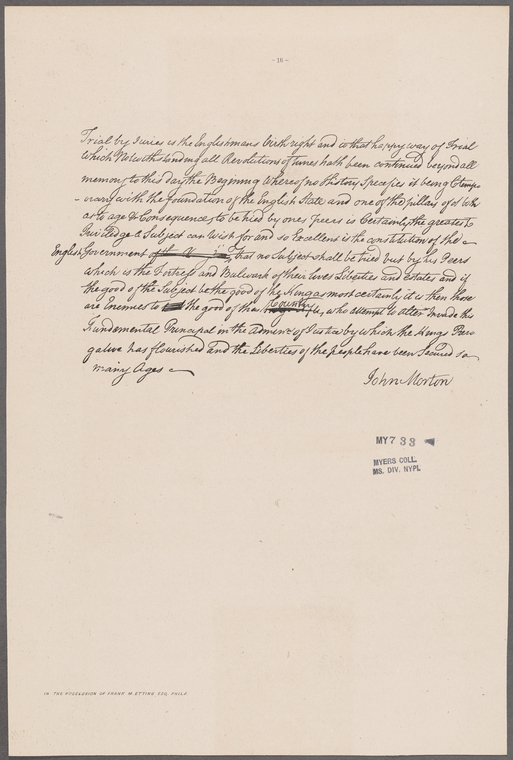 - 18 -
Trial by Juries is the Englishmans birth right and is that happy way of Trial
Which Notwithstanding all Revolutions of times hath been continued beyond all
memory to this day the Beginning Whereof no History Specefies it being Contempo
-orary with the foundation of the English State and one of the pillars of it both
as to age & Consequence, to be tried by ones peers is Certainly the greatest
Priviledge a Subject can Wish for and so Excellent is the constitution of the
English Government that no Subject shall be tried but by his Peers
which is the Fortress and Bulwark of their lives Liberties and estates and if
the good of the Subject be the good of the King as most certainly it is then those
are Enemies to the good of the Country, who attempt to alter or Invade this
Fundemental Principal in the admin: of Justice by which the Kings Prero
gative has flourished and the Liberties of the people have been Secured so
many Ages
John Morton
MY 733
MYERS COLL.
MS. DIV. NYPL
IN THE POSSESSION OF FRANK M. ETTING ESQ. PHILA.